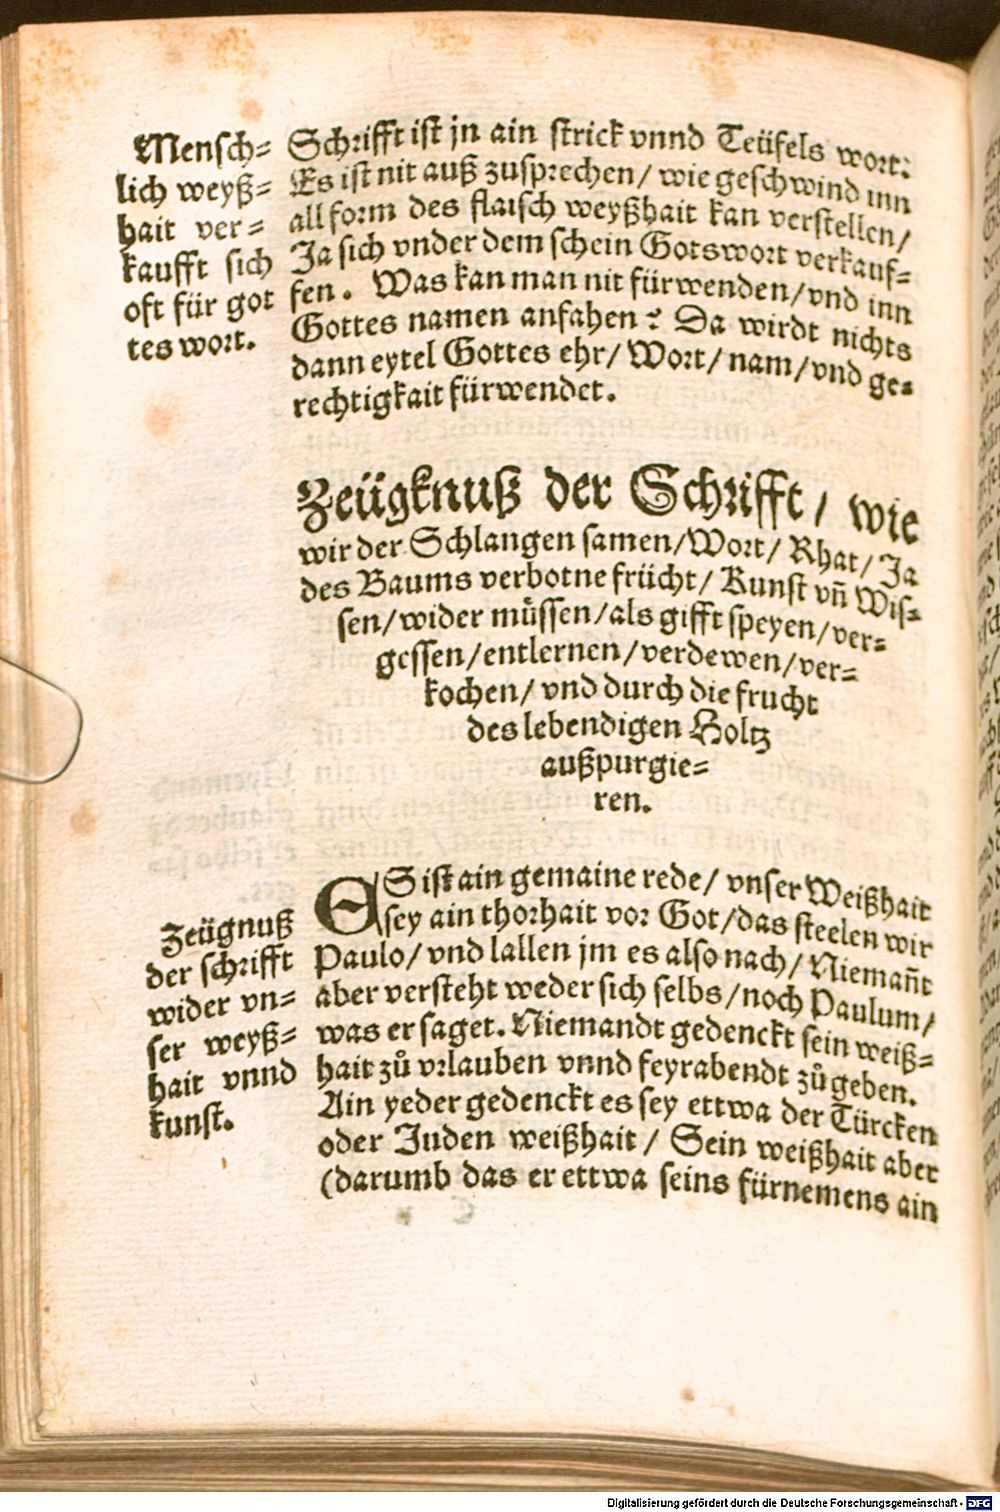 Mensch-
lich weyß-
hait ver-
kaufft sich
oft für got
tes wort.
Schrifft ist jn ain strick vnnd Teüfels wort:
Es ist nit auß zusprechen/ wie geschwind inn
all form des flaisch weyßhait kan verstellen/
Ja sich vnder dem schein Gotswort verkauf-
fen. Was kan man nit fürwenden/ vnd inn
Gottes namen anfahen? Da wirdt nichts
dann eytel Gottes ehr/ Wort/ nam/ vnd ge-
rechtigkait fürwendet.
Zeügknuß der Schrifft/ wie
wir der Schlangen samen/ Wort/ Rhat/ Ja
des Baums verbotne frücht/ Kunst vn̄ Wis-
sen/ wider müssen/ als gifft speyen/ ver-
gessen/ entlernen/ verdewen/ ver-
kochen/ vnd durch die frucht
des lebendigen Holtz
außpurgie-
ren.
Zeügnuß
der schrifft
wider vn-
ser weyß-
hait vnnd
kunst.
ES ist ain gemaine rede/ vnser Weißhait
sey ain thorhait vor Got/ das steelen wir
Paulo/ vnd lallen jm es also nach/ Niemañt
aber versteht weder sich selbs/ noch Paulum/
was er saget. Niemandt gedenckt sein weiß-
hait zů vrlauben vnnd feyrabendt zů geben.
Ain yeder gedenckt es sey ettwa der Türcken
oder Juden weißhait/ Sein weißhait aber
(darumb das er ettwa seins fürnemens ain
Digitalisierung gefördert durch die Deutsche Forschungsgemeinschaft - DFG